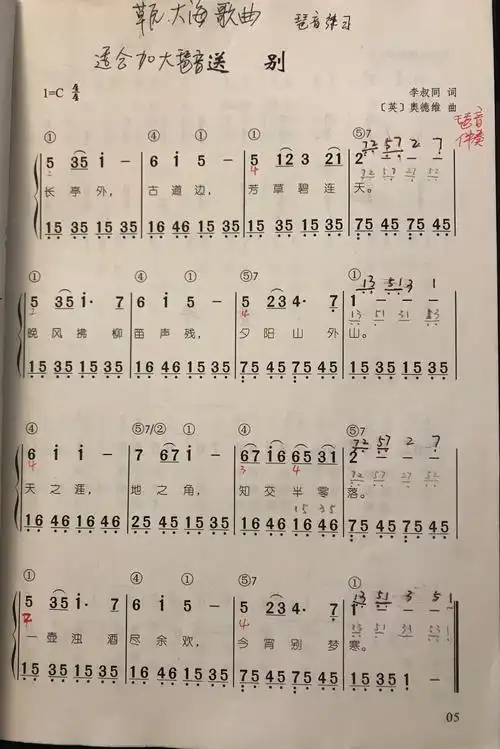 大海歌曲 琶音练习
适合加大琶音 送 别
1=C 4/4
李叔同 词
〔英〕奥德维 曲
琶音
伴奏
① ④ ① ① ⑤7
5 35 i - 6 i 5 - 5 12 3 21 2 - - -
长亭外， 古道边， 芳草碧连天。
15 35 15 35 16 46 15 35 15 35 15 35 75 45 75 45
① ④ ① ⑤7 ①
5 35 i· 7 6 i 5 - 5 23 4· 7 1 - - -
晚风拂柳笛声残， 夕阳山外山。
15 35 15 35 16 46 15 35 75 45 75 45 15 35 15 35
④ ⑤7/② ① ④ ⑤7
6 i i - 7 67 i - 67 i6 65 31 2 - - -
天之涯， 地之角， 知交半零落。
15 35
16 46 16 46 25 45 15 35 16 46 16 46 75 45 75 45
① ④ ① ⑤7 ①
5 35 i· 7 6 i 5 - 5 23 4· 7 1 - - -
一壶浊酒尽余欢， 今宵别梦寒。
15 35 15 35 16 46 15 35 75 45 75 45 15 35 1 -
05